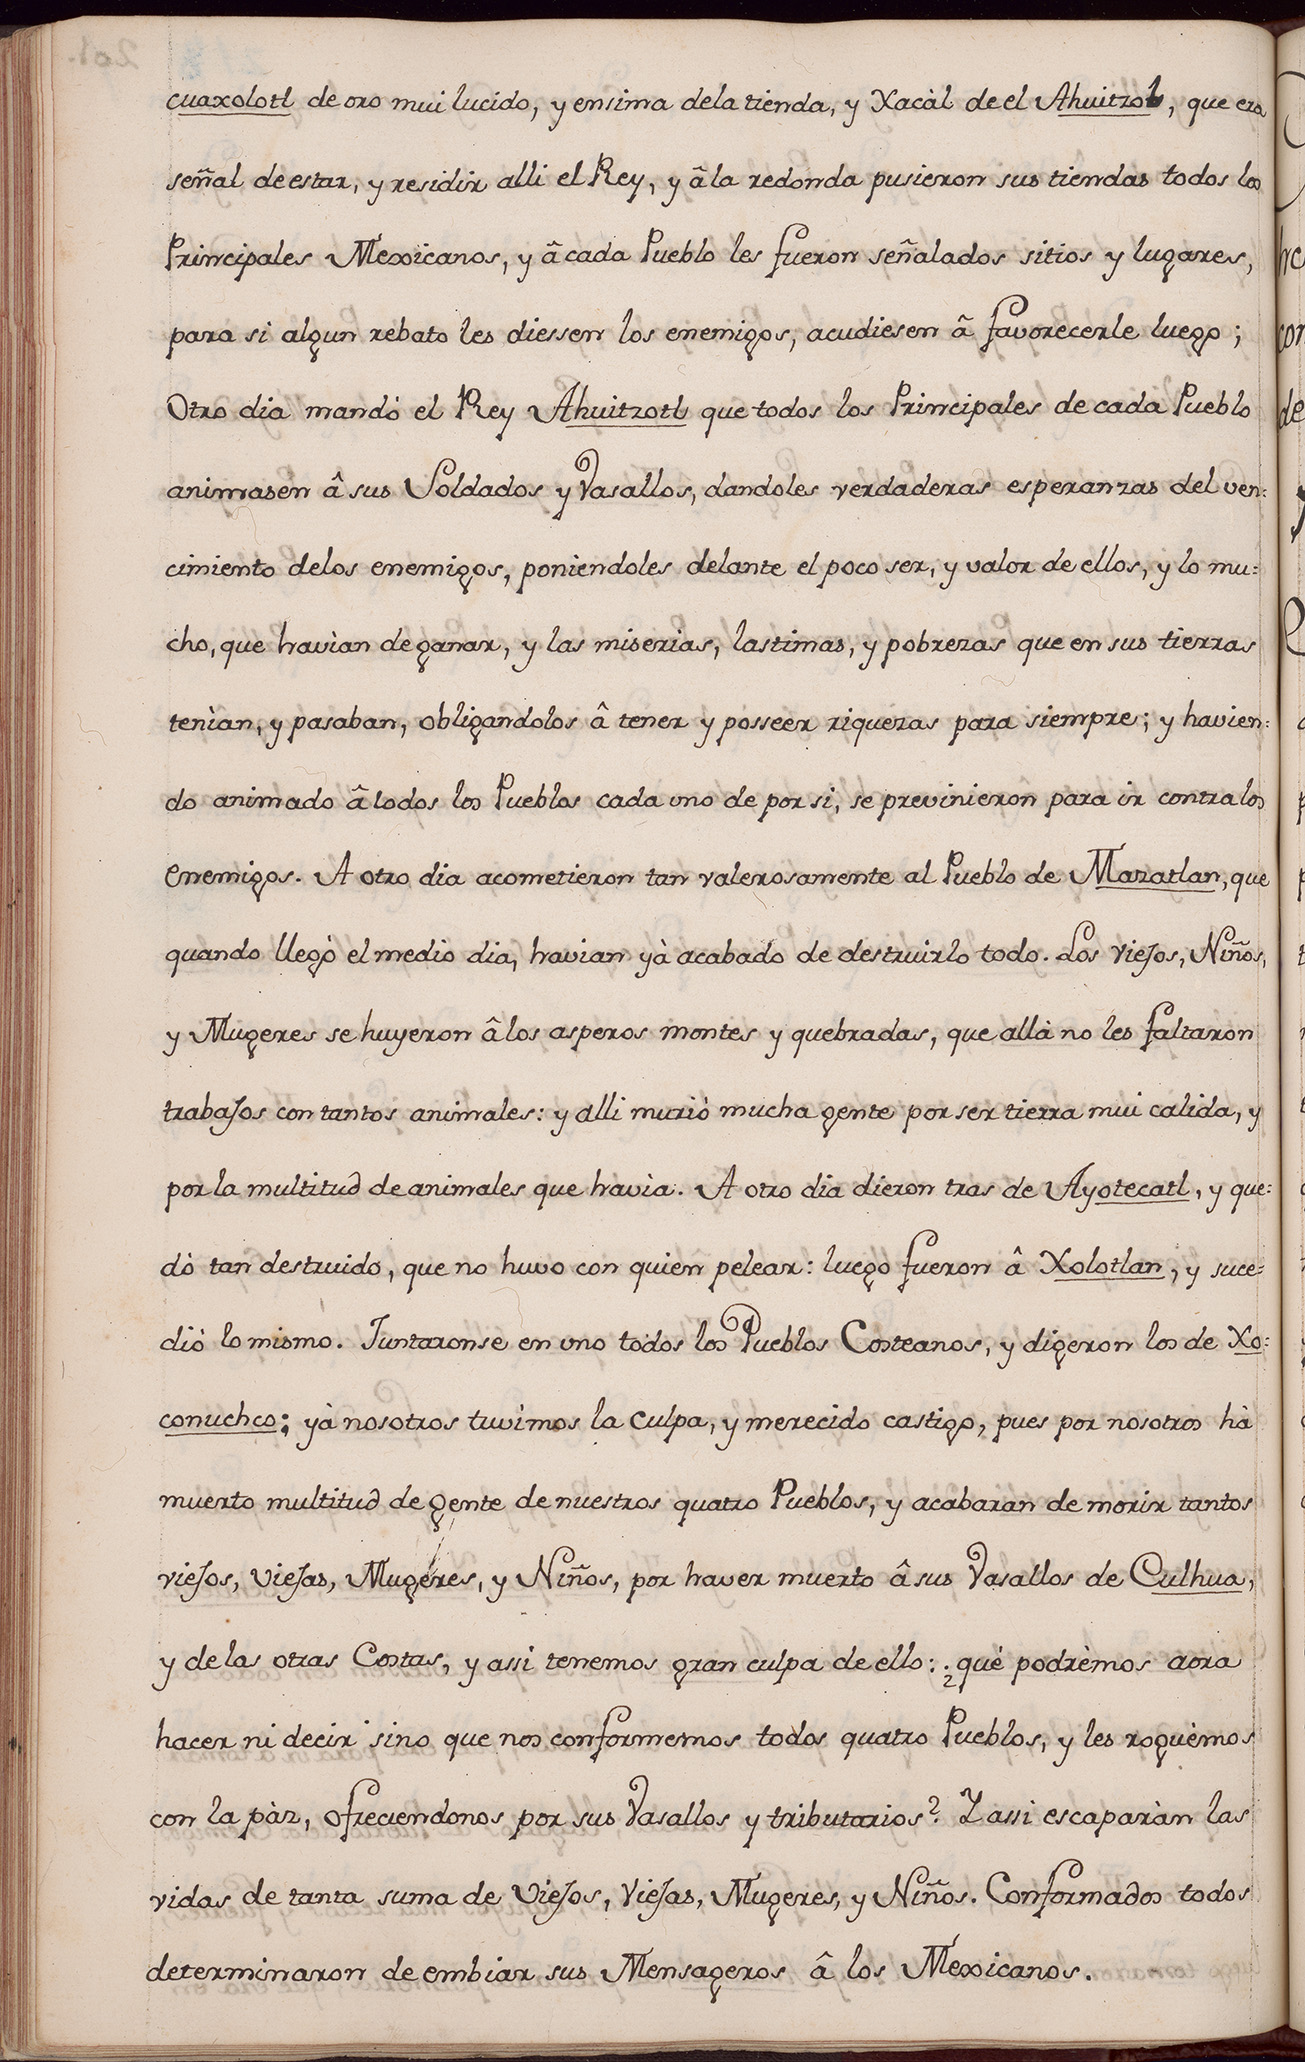 cuaxolotl de oro mui lucido, y ensima dela tienda, y Xacàl de el Ahuitzotl, que era
señal de estar, y residir alli el Rey, y â la redonda pusieron sus tiendas todos los
Principales Mexicanos, y â cada Pueblo les fueron señalados sitios y lugares,
para si algun rebato les diessen los enemigos, acudiesen â favorecerle luego;
Otro dia mandò el Rey Ahuitzotl que todos los Principales de cada Pueblo
animasen â sus Soldados y Vasallos, dandoles verdaderas esperanzas del ven:
cimiento delos enemigos, poniendoles delante el poco ser, y valor de ellos, y lo mu:
cho, que havìan de ganar, y las miserias, lastimas, y pobrezas que en sus tierras
tenìan, y pasaban, obligandolos â tener y posseer riquezas para siempre; y havien:
do animado â todos los Pueblos cada uno de por si, se previnieron para ir contra los
enemigos. A otro dia acometieron tan valerosamente al Pueblo de Mazatlan, que
quando llegò el medio dia, havian yà acabado de destruirlo todo. Los Viejos, Niños,
y Mugeres se huyeron â los asperos montes y quebradas, que allà no les faltaron
trabajos con tantos animales: y alli muriò mucha gente por ser tierra mui calida, y
por la multitud de animales que havìa. A otro dia dieron tras de Ayotecatl, y que:
dò tan destruido, que no huvo con quien pelear: luego fueron â Xolotlan, y suce:
diò lo mismo. Juntaronse en uno todos los Pueblos Costeanos, y digeron los de Xo:
conuchco; yà nosotros tuvimos la culpa, y merecido castigo, pues por nosotros hà
muerto multitud de gente de nuestros quatro Pueblos, y acabaran de morir tantos
viejos, viejas, Mugeres, y Niños, por haver muerto â sus Vasallos de Culhua,
y de las otras Costas, y assi tenemos gran culpa de ello: ¿què podrèmos aora
hacer ni decir sino que nos conformemos todos quatro Pueblos, y les roguèmos
con la pàz, ofreciendonos por sus Vasallos y tributarios? Y assi escaparàn las
vidas de tanta suma de Viejos, Viejas, Mugeres, y Niños. Conformados todos
determinaron de embiar sus Mensageros â los Mexicanos.